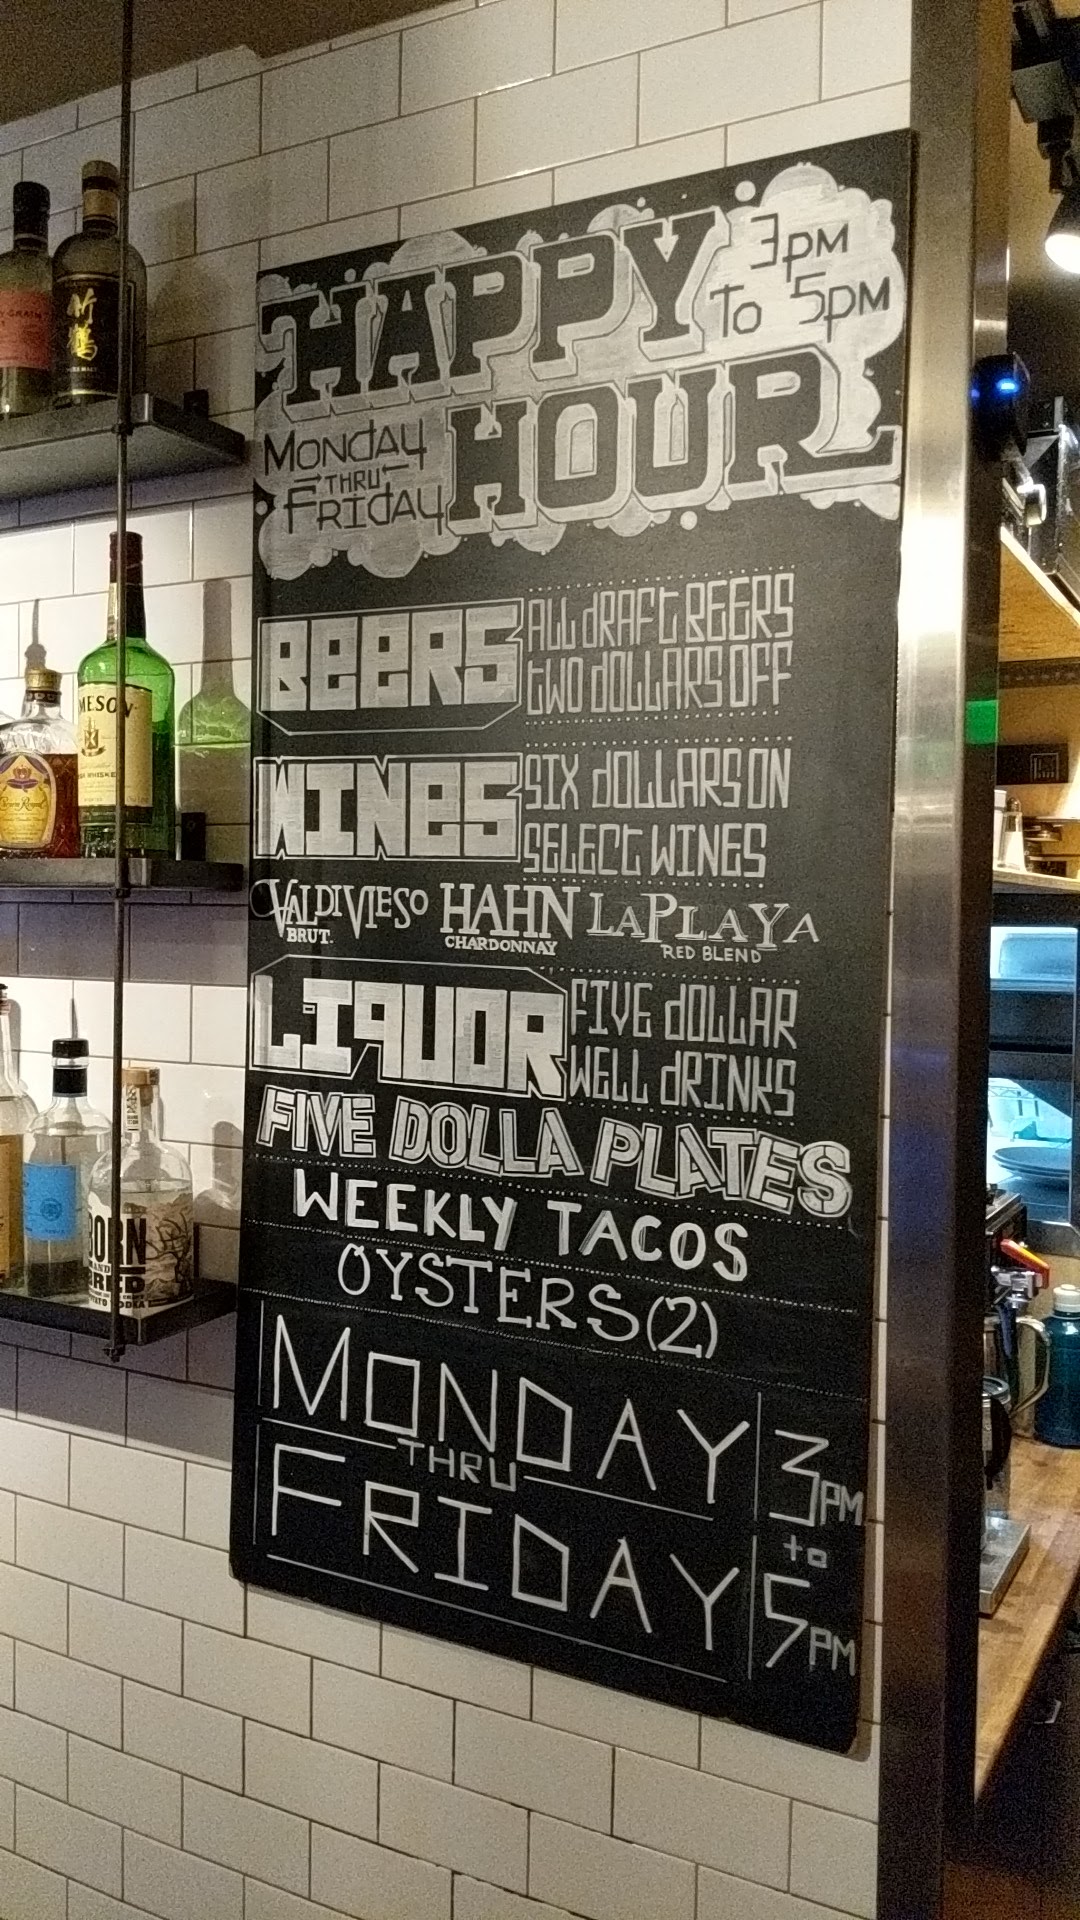 HAPPY
3PM
TO 5PM
HOUR
MONDAY
THRU
FRIDAY
BEERS
ALL DRAFT BEERS
TWO DOLLARS OFF
WINES
SIX DOLLARS ON
SELECT WINES
VALDIVIESO
BRUT.
HAHN
CHARDONNAY
LAPLAYA
RED BLEND
LIQUOR
FIVE DOLLAR
WELL DRINKS
FIVE DOLLA PLATES
WEEKLY TACOS
OYSTERS (2)
MONDAY
THRU
FRIDAY
3PM
to
5PM
GRAIN
竹
鶴
MESON
WHISKEY
Crown Royal
BORN
AND
BRED
VODKA